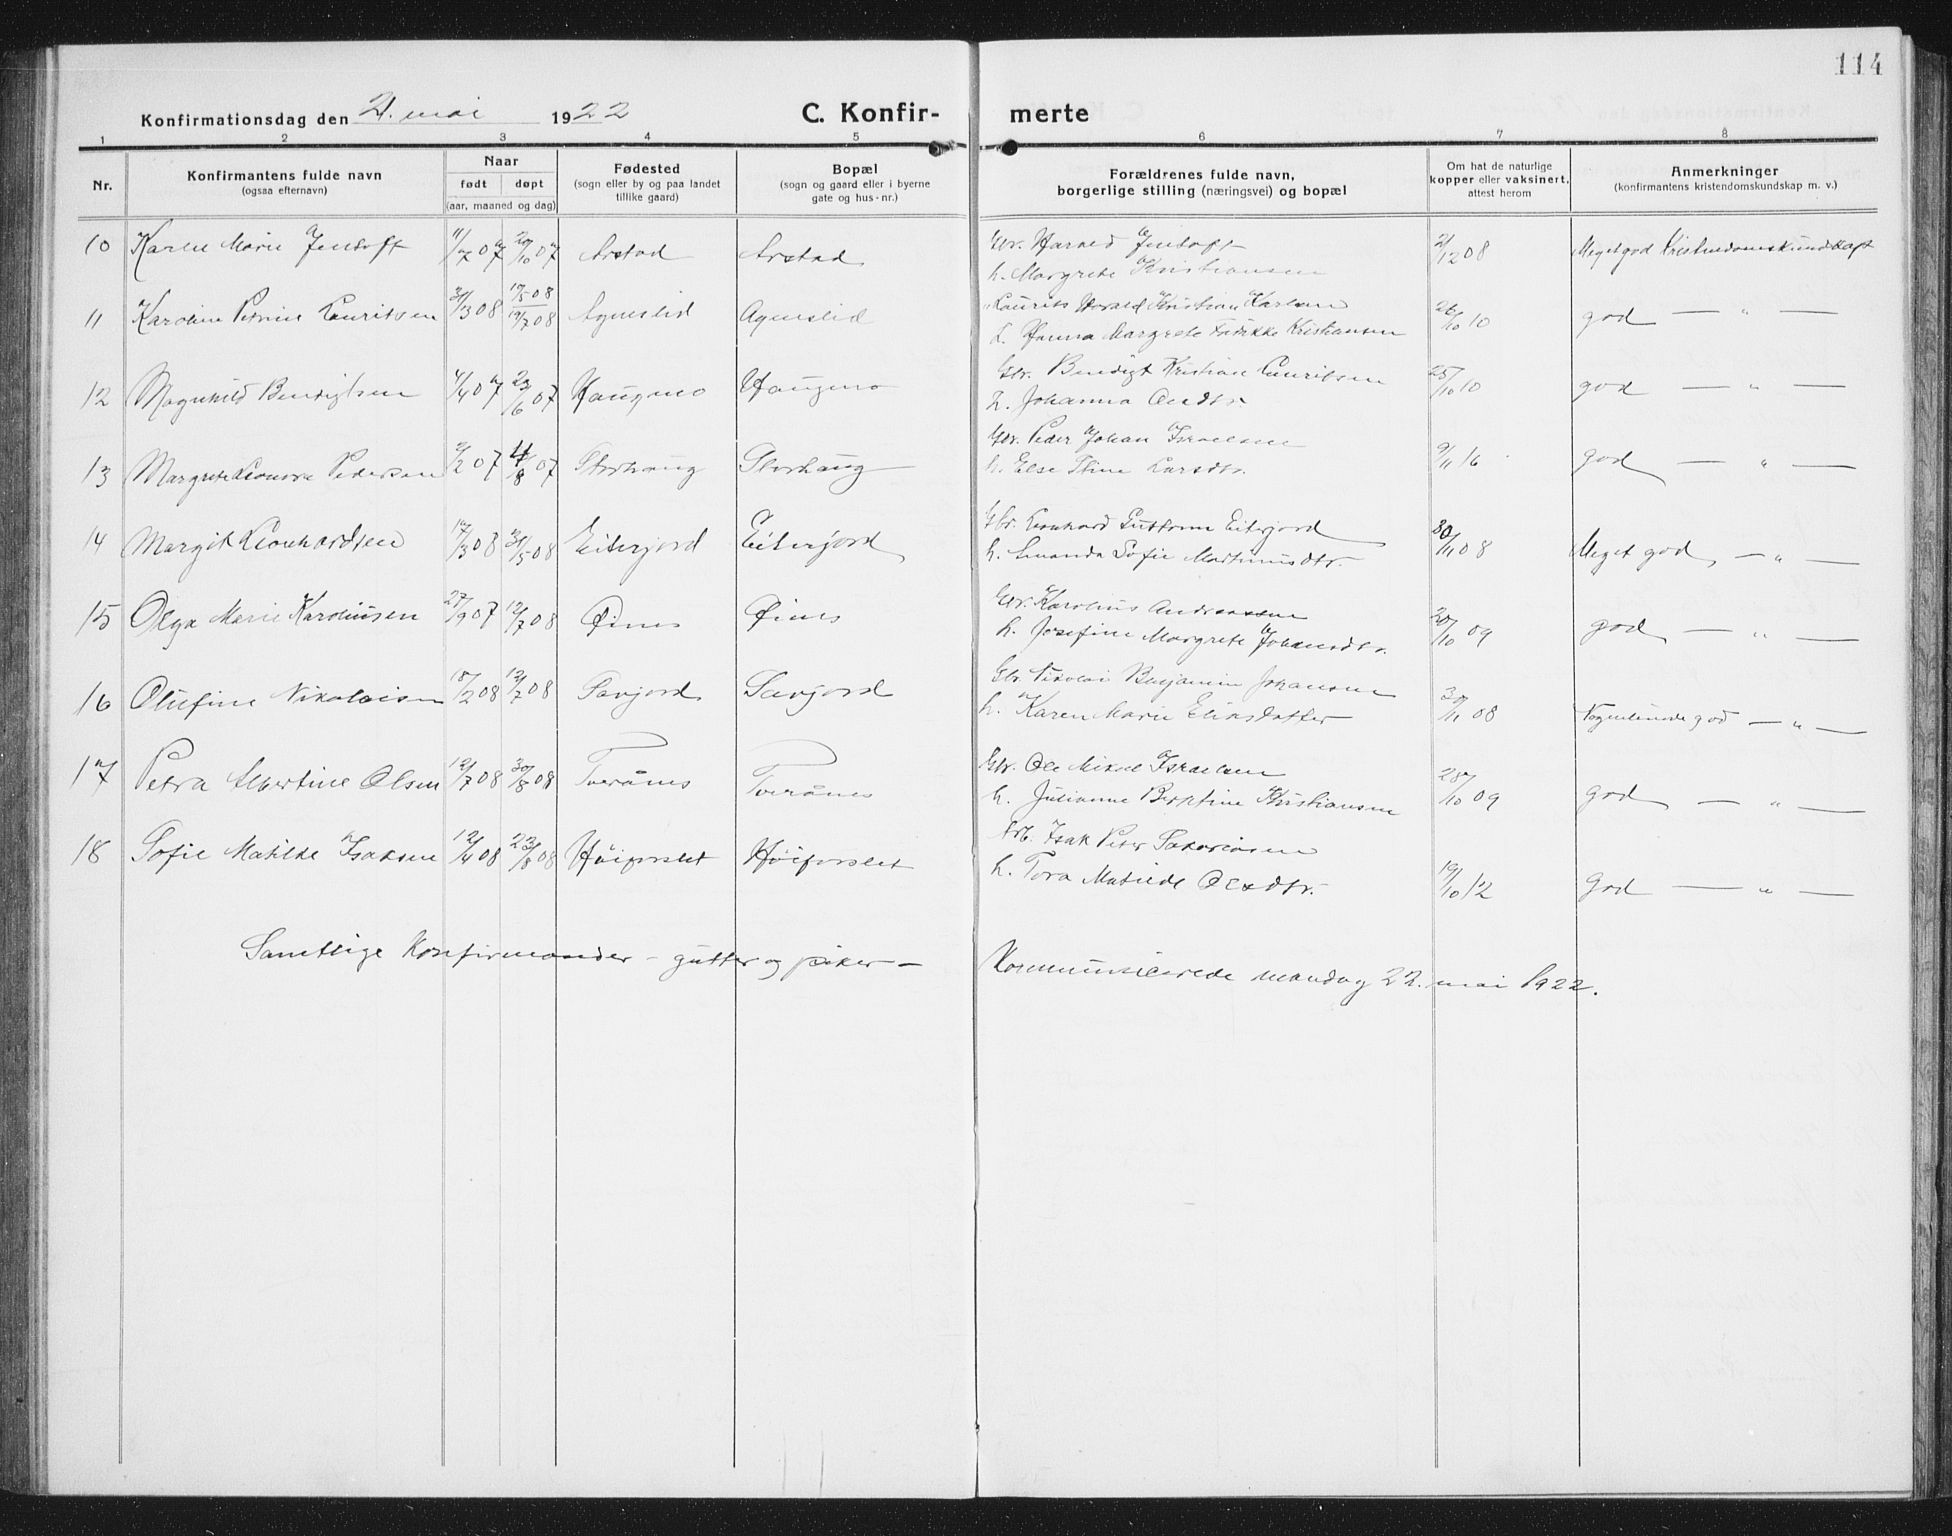 114
Konfirmationsdag den 21. mai 1922 C. Konfir- merte
1 2 3 4 5 6 7 8
Nr.
Konfirmantens fulde navn
(ogsaa efternavn)
Naar
født døpt
(aar, maaned og dag)
Fødested
(sogn eller by og paa landet
tillike gaard)
Bopæl
(sogn og gaard eller i byerne
gate og hus-nr.)
Forældrenes fulde navn,
borgerlige stilling (næringsvei) og bopæl
Om hat de naturlige
kopper eller vaksinert,
attest herom
Anmerkninger
(konfirmantens kristendomskundskap m. v.)
10 Karen Marie Jentoft 11/7 07 20/10 07 Arstad Arstad Gbr. Harald Jentoft 2/12 08 Meget god Kristendomskundskap
h. Margrete Kristiansen
11 Karoline Petrine Lauritsen 31/3 08 17/5 08 19/7 08 Agneslid Agneslid Laurits Harald Kristian Karlsen 26/10 10 god — " —
h. Hanna Margrete Fredrikke Kristiansen
12 Magnhild Bendigtsen 4/4 07 23/6 07 Haugmo Haugmo Gbr. Bendigt Kristian Lauritsen 25/10 10 god — " —
h. Johanna Olsdtr.
13 Margrete Leonora Pedersen 2/2 07 4/8 07 Storhaug Storhaug Gbr. Peder Johan Israelsen 9/11 16 god — " —
h. Else Stine Larsdtr.
14 Margit Leonhardsen 17/3 08 31/5 08 Eiterjord Eiterjord Gbr. Leonhard Guttorm Eiterjord 30/11 08 Meget god — " —
h. Amanda Sofie Martinusdtr.
15 Olga Marie Karoliusen 27/9 07 12/7 08 Øines Øines Gbr. Karolius Andreassen 20/10 09 god — " —
h. Josefine Margrete Johansdtr.
16 Olufine Nikolaisen 18/2 08 12/7 08 Savjord Savjord Gbr. Nikolai Benjamin Johansen 30/11 08 Nogenlunde god — " —
h. Karen Marie Eliasdatter
17 Petra Albertine Olsen 12/7 08 30/8 08 Tverånes Tverånes Gbr. Ole Mikal Israelsen 28/10 09 god — " —
h. Julianne Kristiansen
18 Sofie Matilde Isaksen 12/4 08 23/8 08 Høiforslet Høiforslet Arb. Isak Peter Sakariasen 19/10 12 God — " —
h. Tora Matilde Olsdtr.
Samtlige Konfirmander – gutter og piker – Kommunicerede mandag 22. mai 1922.